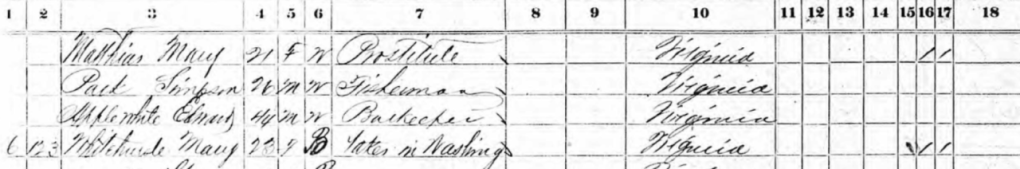 1 2 3 4 5 6 7 8 9 10 11 12 13 14 15 16 17 18
Matthias Mary 21 F W Prostitute Virginia 1 1
Park Simpson 26 M W Fisherman Virginia
Applewhite Edward 44 M W Barkeeper Virginia
6 123 Whitehurst Mary 23 F B Takes in Washing Virginia 1 1 1